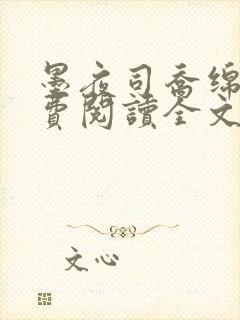 墨夜司喬綿
費閱讀全文
文心